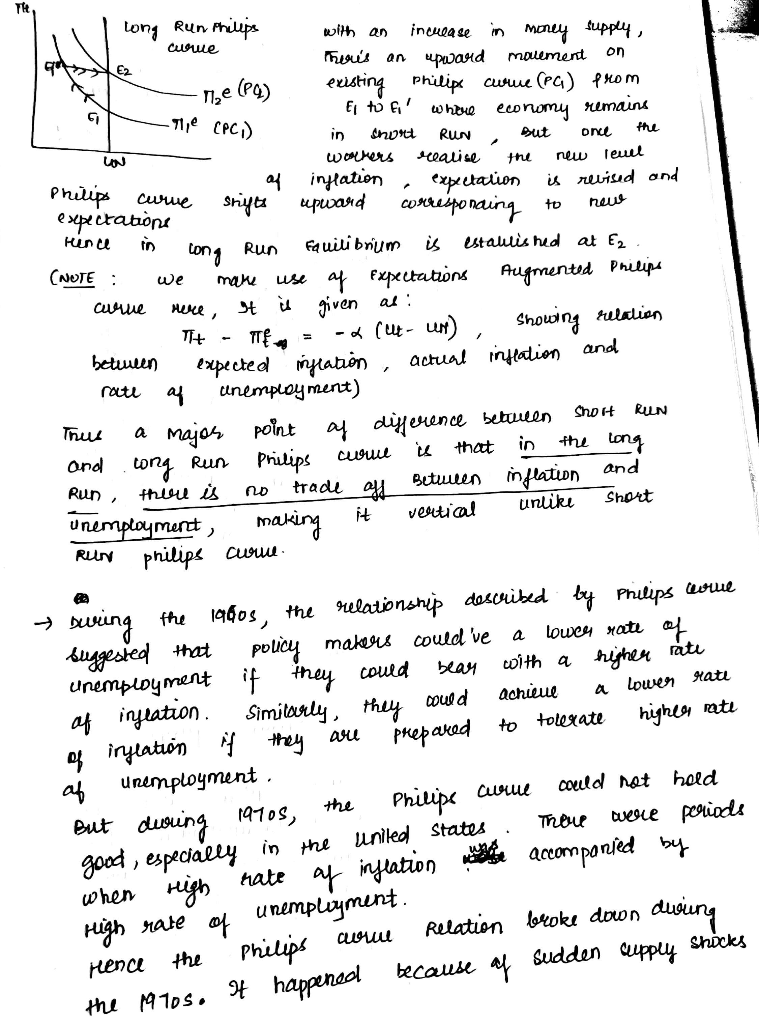 πt
Long Run Philips
curve
E1'
E2
E1
π2e (PC2)
π1e (PC1)
UN
with an increase in money supply,
There's an upward movement on
existing Philips curve (PC1) from
E1 to E1' where economy remains
in short Run, But once the
workers realise the new level
of inflation, expectation is revised and
Philips curve shifts upward corresponding to new
expectations
Hence in Long Run Equilibrium is established at E2.
(NOTE : we make use of Expectations Augmented Philips
curve here, It is given as :
πt - πet = -α (ut - un), Showing relation
between expected inflation, actual inflation and
rate of unemployment)
Thus a major point of difference between Short Run
and Long Run Philips curve is that in the Long
Run, there is no trade off Between inflation and
unemployment, making it vertical unlike Short
Run philips curve.
→ During the 1960s, the relationship described by Philips curve
suggested that policy makers could've a lower rate of
unemployment if they could bear with a higher rate
of inflation. Similarly, they could achieve a lower rate
of inflation if they are prepared to tolerate higher rate
of unemployment.
But during 1970s, the Philips curve could not hold
good, especially in the United States. There were periods
when High rate of inflation was accompanied by
High rate of unemployment.
Hence the Philips curve Relation broke down during
the 1970s. It happened because of sudden supply shocks